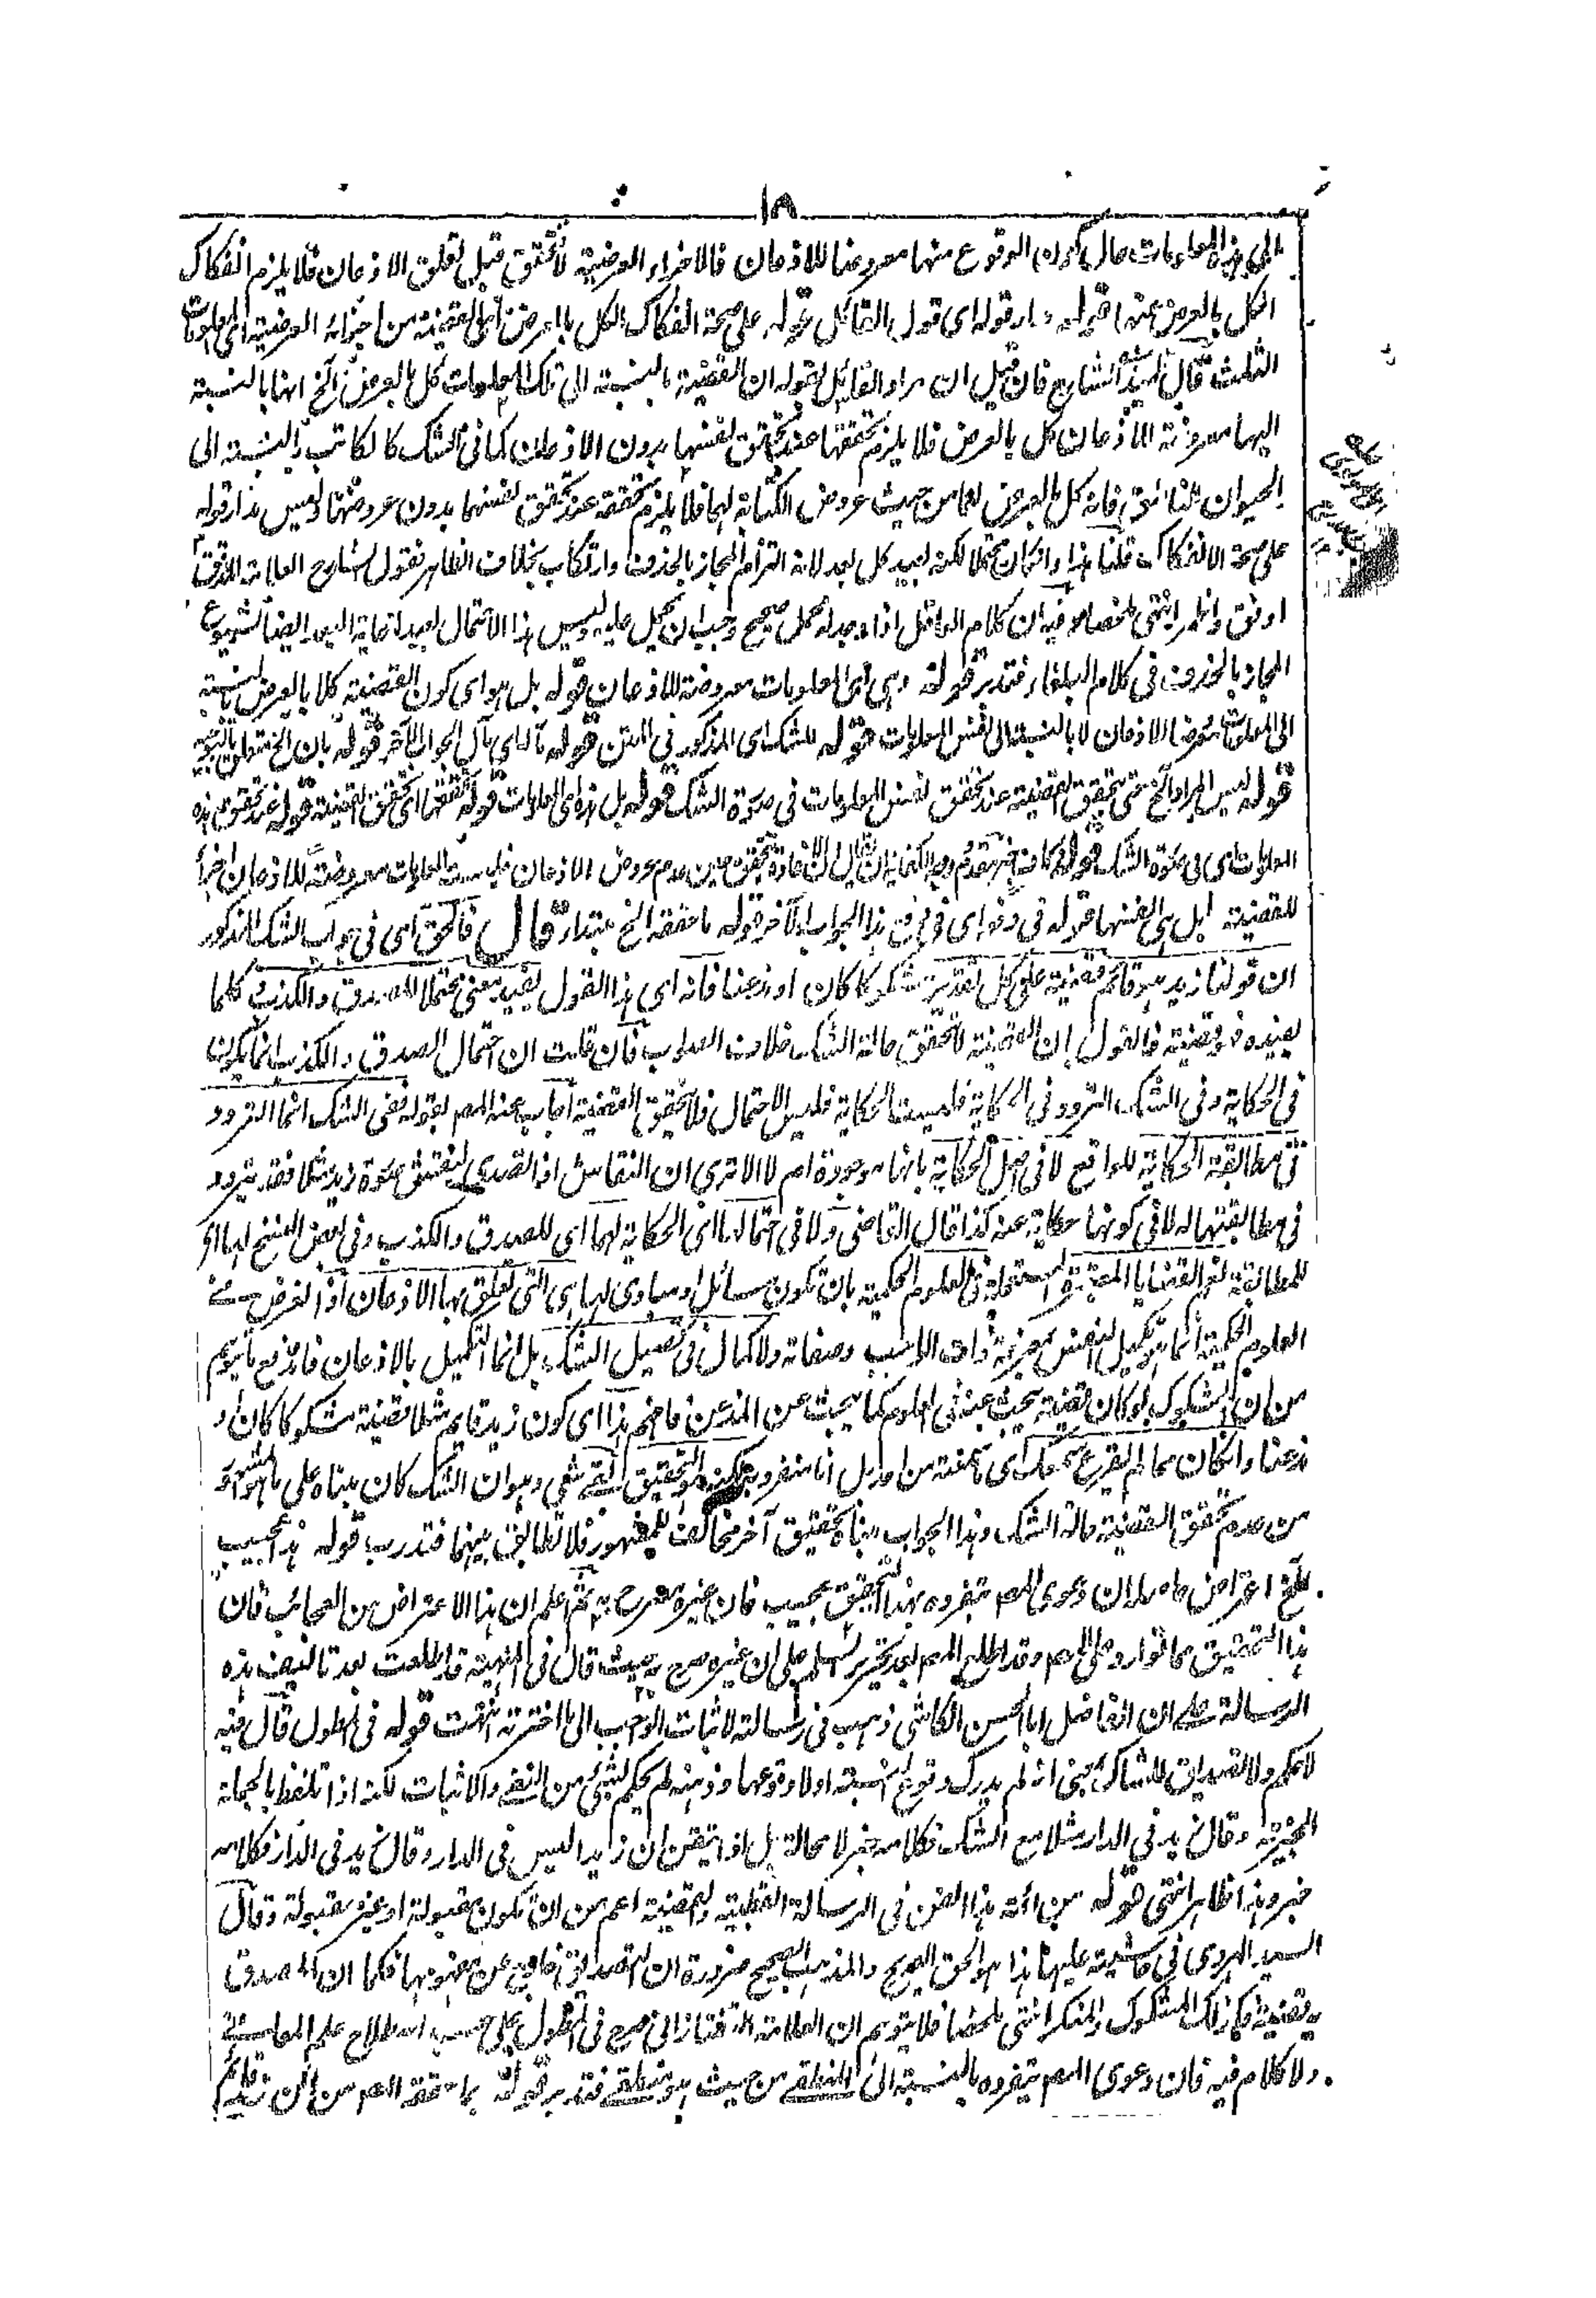 ١٨
الى هذه المعلومات حال كون الوقوع منها معروضا للاذعان فالاجزاء العرضية لا تتحقق قبل تعلق الاذعان فلا يلزم انفكاك
الكل بالعرض عنه قوله اى قول القائل قوله على صحة انفكاك الكل بالعرض اى القضية من اجزائه العرضية اى المعلومات
الثلث قال تلميذ الشارح فان قيل ان مراد القائل بقوله ان القضية بالنسبة الى تلك المعلومات كل بالعرض الخ انها بالنسبة
اليها معروضة للاذعان كل بالعرض فلا يلزم تحققها عند تحقق نفسها بدون الاذعان كما فى الشك كالكاتب بالنسبة الى
الحيوان الناطق فانه كل بالعرض لهما من حيث عروض الكتابة لهما فلا يلزم تحققه عند تحقق نفسهما بدون عروضها وليس مدار قوله
على صحة الانفكاك قلنا هذا وان كان محتملا لكنه بعيد كل بعد لانه التزام المجاز بالحذف وارتكاب بخلاف الظاهر فقول الشارح العلامة
اوفق واظهر انتهى ملخصا وفيه ان كلام العاقل اذا وجد له محمل صحيح وجب ان يحمل عليه وليس هذا الاحتمال بعيدا غاية البعد ايضا لشيوع
المجاز بالحذف فى كلام البلغاء فتدبر قوله وهى اى المعلومات معروضة للاذعان قوله بل هو اى كون القضية كلا بالعرض بالنسبة
الى المعلومات معروضا للاذعان لا بالنسبة الى نفس المعلومات قوله للشك اى المذكور فى المتن قوله مآله اى مآل الجواب الآخر قوله بان الخ متعلق بالتوجيه
قوله ليس المراد الخ حتى يتحقق القضية عند تحقق نفس المعلومات فى صورة الشك قوله بل هذه اى المعلومات قوله تحققها اى تحقق القضية قوله عند تحقق هذه
المعلومات اى فى صورة الشك قوله كاف خبر تقدم وجه الكفاية ان يقال ان الافادة تتحقق حين عدم عروض الاذعان فليست المعلومات معروضة للاذعان اجزاء
للقضية بل هى انفسها قوله فى دفعه اى فى دفع هذا الجواب الآخر قوله ما حققه الخ مبتدأ قال فالحق اى فى جواب الشك المذكور
ان قولنا زيد هو قائم قضية على كل تقدير مشكوكا كان او مذعنا فانه اى هذا القول يفيد معنى محتملا للصدق والكذب وكلما
يفيده فهو قضية فالقول ان القضية لا تتحقق حالة الشك خلاف الصواب فان قلت ان احتمال الصدق والكذب انما يكون
فى الحكاية وفى الشك التردد فى الحكاية فليست الحكاية فليس الاحتمال فلا تتحقق القضية اجاب عنه المص بقوله ففى الشك انما التردد
فى مطابقة الحكاية للواقع لا فى اصل الحكاية بانها موجودة ام لا الا ترى ان النقاش اذا تصدى لنقش صورة زيد مثلا فقد يتردد
فى مطابقتها له لا فى كونها حكاية عنه كذا قال القاضى ولا فى احتمالها اى الحكاية لهما اى للصدق والكذب وفى بعض النسخ لها اى
للمطابقة نعم القضايا المعتبرة المستعملة فى العلوم الحكمية بان تكون مسائل او مبادى لها هى التى تعلق بها الاذعان اذ الغرض من
العلوم الحكمية انما هو تكميل النفس بمعرفة ذات الواجب وصفاته ولا كمال فى تحصيل الشك بل انما التكميل بالاذعان فاندفع ما يتوهم
من ان المشكوك لو كان قضية يبحث عنه فى العلوم كما يبحث عن المذعن فافهم هذا اى كون زيد قائم مثلا قضية مشكوكا كان او
مذعنا وان كان مما لم يقرع سمعك اى ما سمعته من احد بل انا متفرد به لكنه هو التحقيق بقى شئ وهو ان الشك كان مبناه على ما هو المشهور
من عدم تحقق القضية حالة الشك وهذا الجواب مبناه تحقيق آخر مخالف للمشهور فلا تطابق بينهما فتدرب قوله هذا عجيب
الخ اعتراض حاصله ان دعوى المص تفرده بهذا التحقيق عجيب فان غيره مصرح به ثم اعلم ان هذا الاعتراض من العجائب فان
هذا التحقيق مما توارد على المص وقد اطلع المص بعد تحرير السلم على ان غيره صرح به حيث قال فى المنهية قد اطلعت بعد تاليف هذه
الرسالة على ان الفاضل ابا الحسن الكاشى ذهب فى رسالته لاثبات الواجب الى ما اخترته انتهت قوله فى المطول قال فيه
لا حكم ولا تصديق للشاك بمعنى انه لم يدرك وقوع النسبة او لا وقوعها وذهنه لم يحكم بشئ من النفى والاثبات لكنه اذا تلفظ بالجملة
الخبرية وقال زيد فى الدار مثلا مع الشك فكلامه خبر لا محالة بل اذا تيقن ان زيدا ليس فى الدار وقال زيد فى الدار فكلامه
خبر وهذا ظاهر انتهى قوله من ائمة هذا الفن فى الرسالة القطبية والقضية اعم من ان تكون مقبولة او غير مقبولة وقال
السيد الهروى فى حاشيته عليها هذا هو الحق الصريح والمذهب الصحيح ضرورة ان التصديق خارج عن مفهومها فكما ان المصدق
به قضية فكذلك المشكوك والمنكر انتهى ملخصا فلا يتوهم ان العلامة التفتازانى صرح فى المطول على حسب اصطلاح علم المعانى
ولا كلام فيه فان دعوى المص تفرده بالنسبة الى المنطقى من حيث هو منطقى فتدبر قوله ما حققه المص من ان زيد قائم